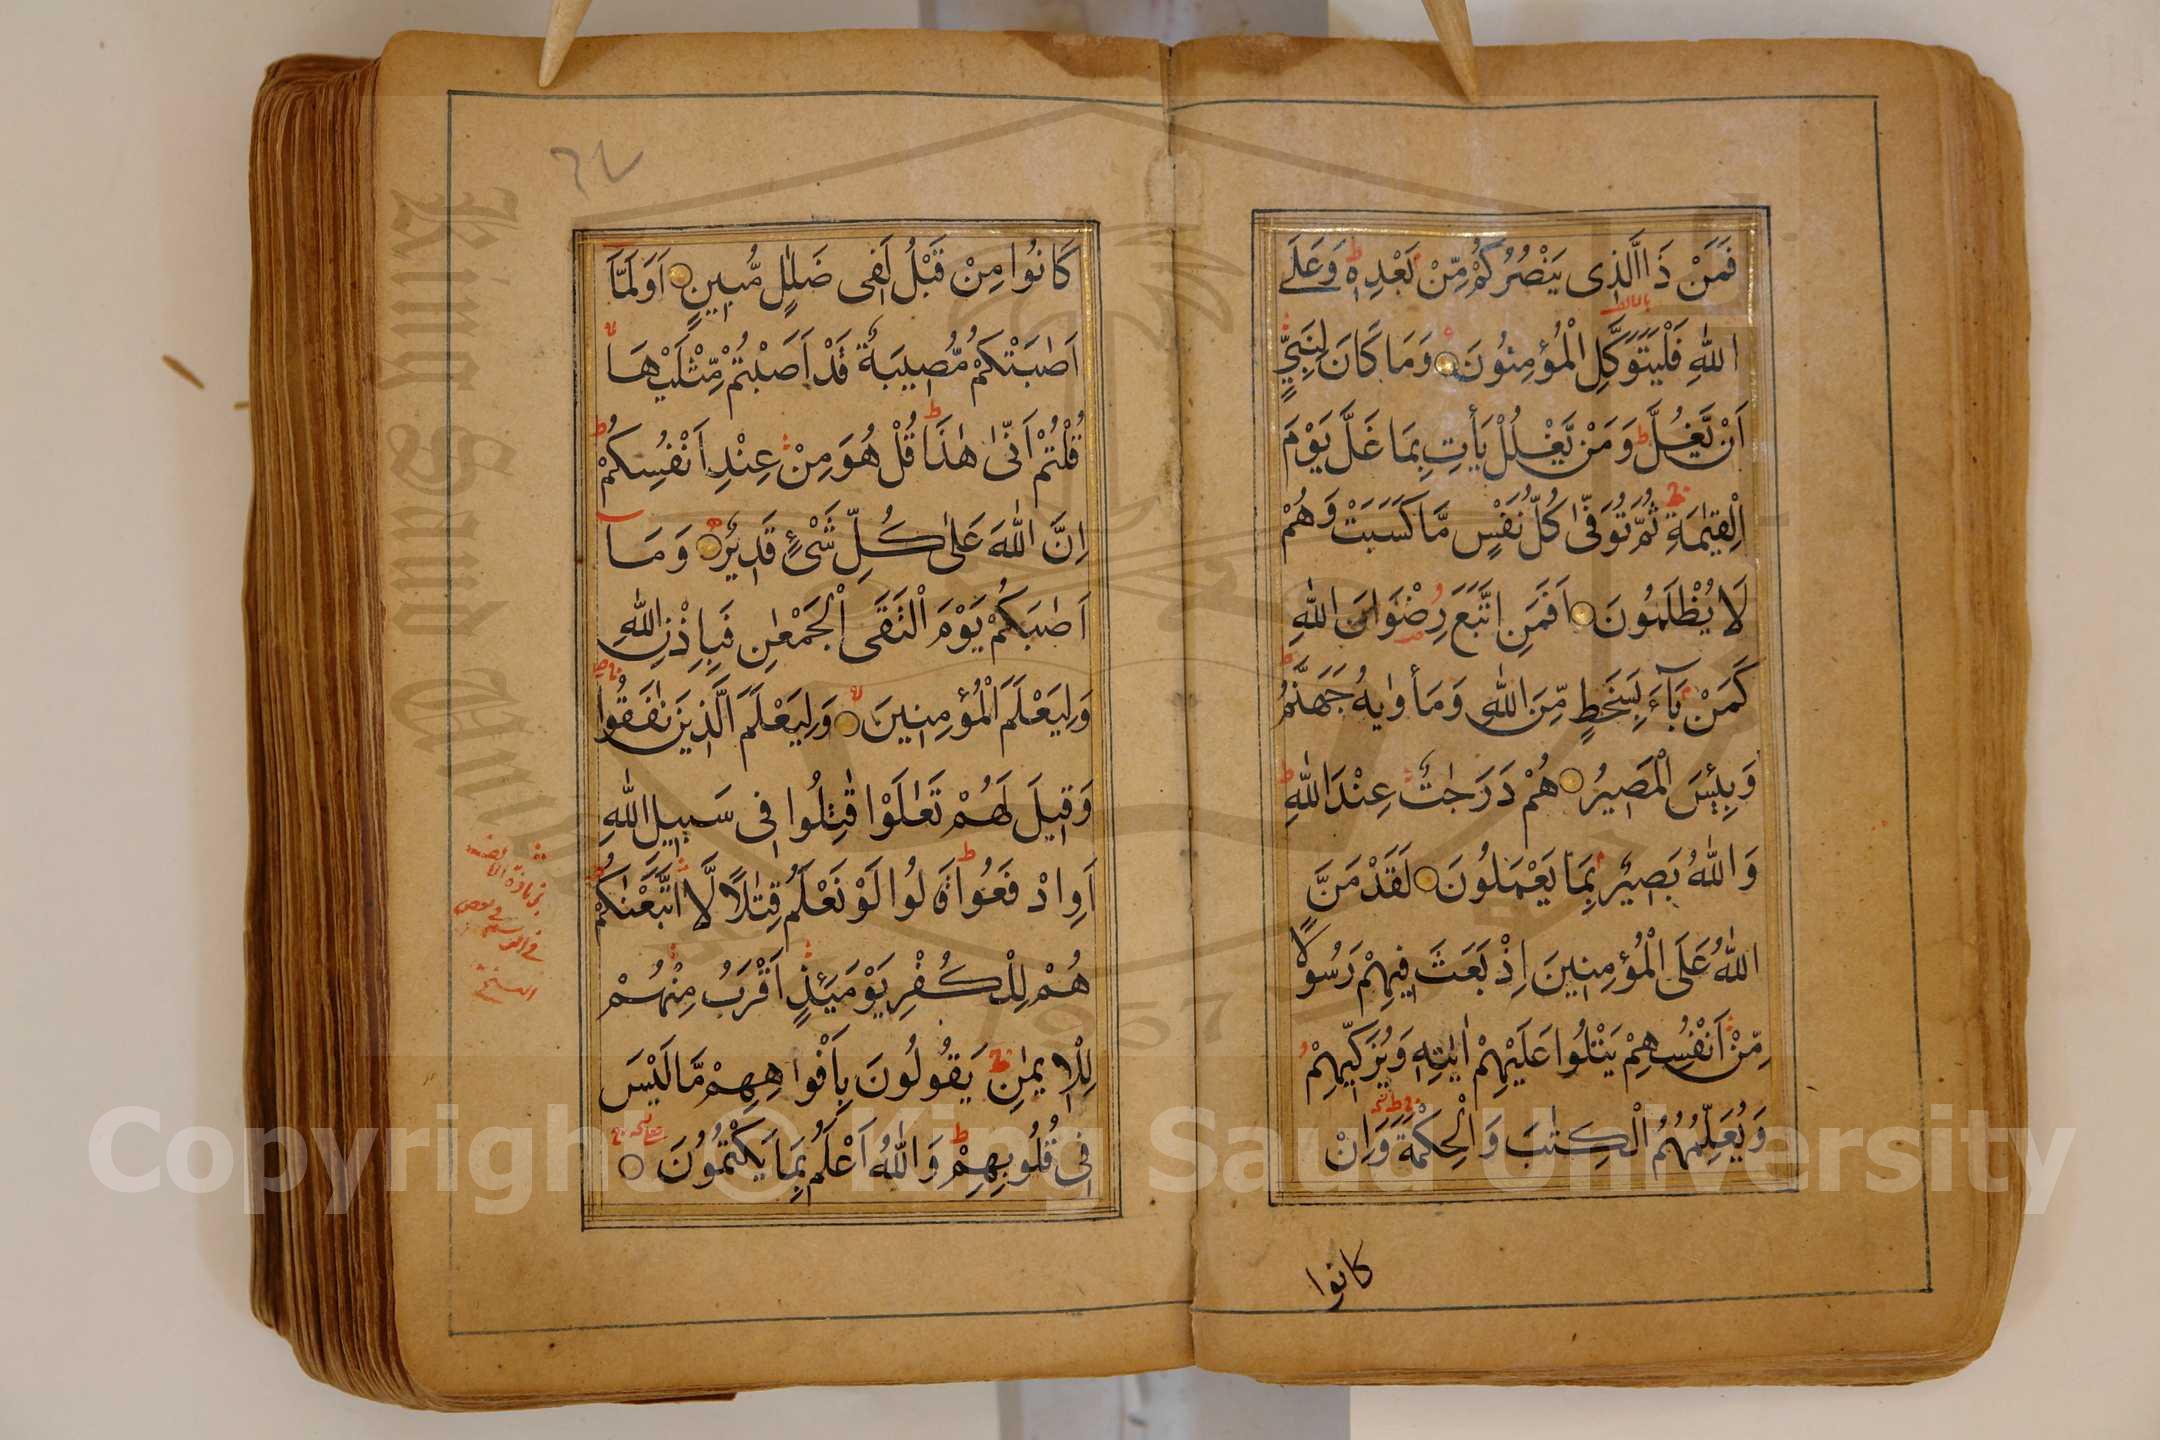 فَمَنْ ذَا الَّذِی یَنْصُرُكُمْ مِّنْ بَعْدِهٖ وَعَلَی
اللّٰهِ فَلْیَتَوَكَّلِ الْمُؤْمِنُونَ وَمَا كَانَ لِنَبِیٍّ
اَنْ یَّغُلَّ وَمَنْ یَّغْلُلْ یَأْتِ بِمَا غَلَّ یَوْمَ
الْقِیٰمَةِ ثُمَّ تُوَفّٰی كُلُّ نَفْسٍ مَّا كَسَبَتْ وَهُمْ
لَا یُظْلَمُونَ اَفَمَنِ اتَّبَعَ رِضْوَانَ اللّٰهِ
كَمَنْ بَآءَ بِسَخَطٍ مِّنَ اللّٰهِ وَمَأْوٰیهُ جَهَنَّمُ
وَبِئْسَ الْمَصِیْرُ هُمْ دَرَجٰتٌ عِنْدَ اللّٰهِ
وَاللّٰهُ بَصِیْرٌ بِمَا یَعْمَلُونَ لَقَدْ مَنَّ
اللّٰهُ عَلَی الْمُؤْمِنِیْنَ اِذْ بَعَثَ فِیْهِمْ رَسُولًا
مِّنْ اَنْفُسِهِمْ یَتْلُوا عَلَیْهِمْ اٰیٰتِهٖ وَیُزَكِّیْهِمْ
وَیُعَلِّمُهُمُ الْكِتٰبَ وَالْحِكْمَةَ وَاِنْ
كانوا
٦٧
كَانُوا مِنْ قَبْلُ لَفِی ضَلٰلٍ مُّبِیْنٍ اَوَلَمَّآ
اَصٰبَتْكُمْ مُّصِیْبَةٌ قَدْ اَصَبْتُمْ مِّثْلَیْهَا
قُلْتُمْ اَنّٰی هٰذَا قُلْ هُوَ مِنْ عِنْدِ اَنْفُسِكُمْ
اِنَّ اللّٰهَ عَلٰی كُلِّ شَیْءٍ قَدِیْرٌ وَمَآ
اَصٰبَكُمْ یَوْمَ الْتَقَی الْجَمْعٰنِ فَبِاِذْنِ اللّٰهِ
وَلِیَعْلَمَ الْمُؤْمِنِیْنَ وَلِیَعْلَمَ الَّذِیْنَ نٰفَقُوا
وَقِیْلَ لَهُمْ تَعَالَوْا قٰتِلُوا فِی سَبِیْلِ اللّٰهِ
اَوِ ادْفَعُوا قَالُوا لَوْ نَعْلَمُ قِتٰلًا لَّا اتَّبَعْنٰكُمْ
هُمْ لِلْكُفْرِ یَوْمَئِذٍ اَقْرَبُ مِنْهُمْ
لِلْاِیْمٰنِ یَقُولُونَ بِاَفْوَاهِهِمْ مَّا لَیْسَ
فِی قُلُوبِهِمْ وَاللّٰهُ اَعْلَمُ بِمَا یَكْتُمُونَ
King Saud University
1957
Copyright © King Saud University